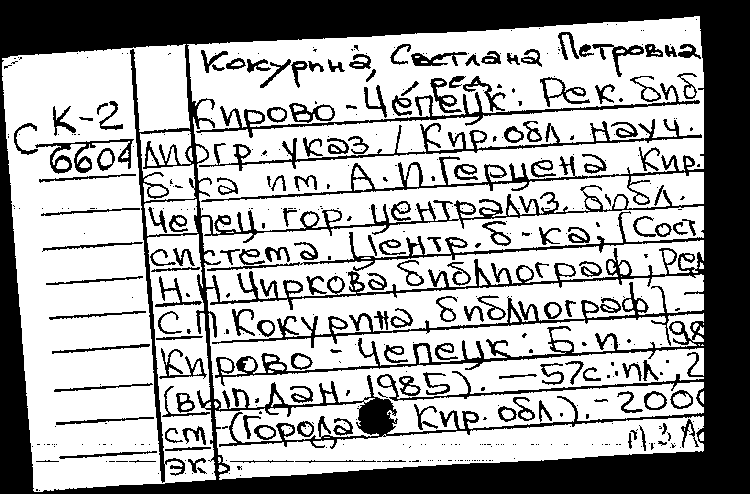 Кокурина, Светлана Петровна
, ред.
К-2
Кирово-Чепецк: Рек. биб-
С
6604
лиогр. указ. / Кир. обл. науч.
б-ка им. А.И.Герцена, Кир.-
Чепец. гор. централиз. библ.
система. Центр. б-ка; [Сост.
Н.Н.Чиркова, библиограф; Ред
С.П.Кокурина, библиограф]. -
Кирово-Чепецк: Б.и., 198
(вып. дан. 1985). — 57с.: ил.; 2
см. - (Города Кир. обл.). - 2000
экз.